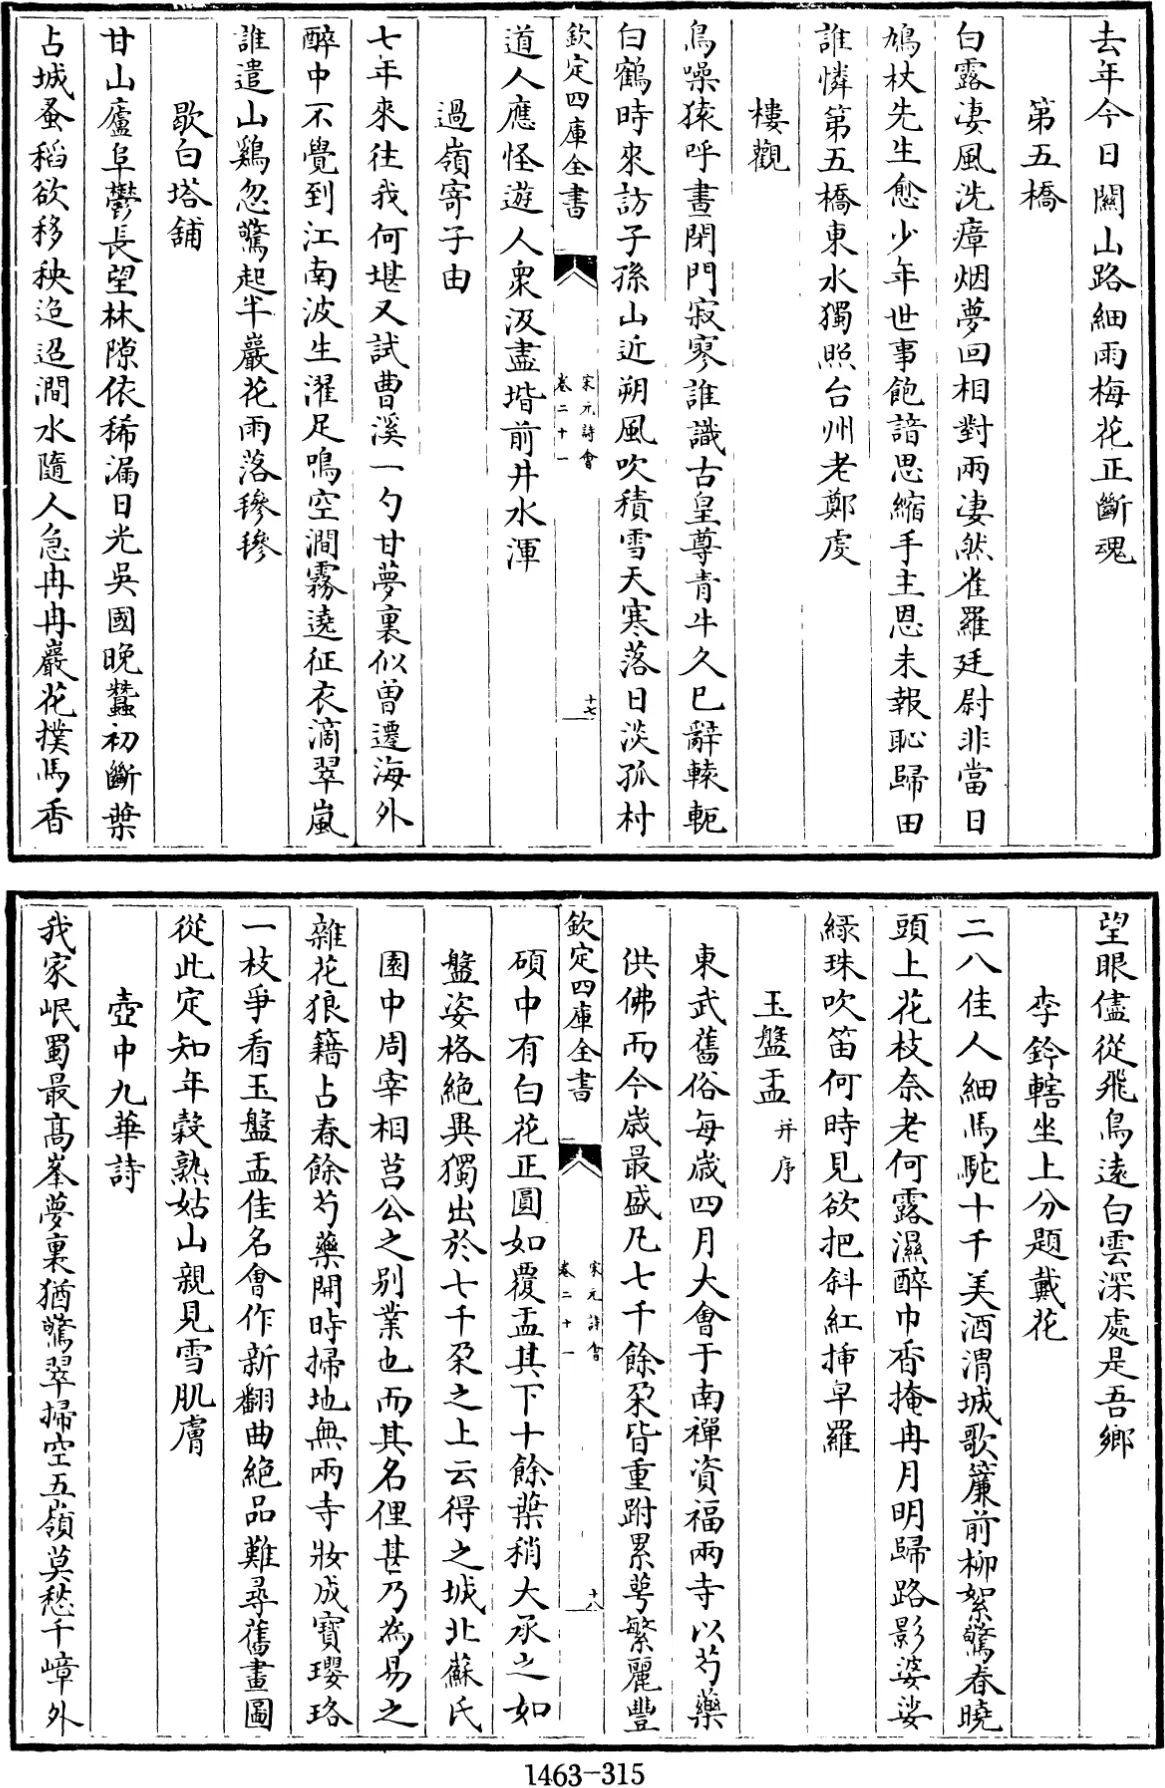 去年今日關山路細雨梅花正斷魂
第五橋
白露凄風洗瘴烟夢回相對兩凄然雀羅廷尉非當日
鳩杖先生愈少年世事飽諳思縮手主恩未報恥歸田
誰憐第五橋東水獨照台州老鄭虔
樓觀
鳥噪猿呼晝閉門寂寥誰識古皇尊青牛久已辭轅軛
白鶴時來訪子孫山近朔風吹積雪天寒落日淡孤村
欽定四庫全書
宋元詩會
卷二十一
十七
道人應怪遊人衆汲盡堦前井水渾
過嶺寄子由
七年來往我何堪又試曹溪一勺甘夢裏似曾遷海外
醉中不覺到江南波生濯足鳴空澗霧遶征衣滴翠嵐
誰遣山鷄忽驚起半巖花雨落毿毿
歇白塔舖
甘山廬阜鬱長望林隙依稀漏日光吳國晚蠶初斷葉
占城蚤稻欲移秧迢迢澗水隨人急冉冉巖花撲馬香
望眼儘從飛鳥遠白雲深處是吾鄉
李鈐轄坐上分題戴花
二八佳人細馬駞十千美酒渭城歌簾前柳絮驚春曉
頭上花枝奈老何露濕醉巾香掩冉月明歸路影婆娑
緑珠吹笛何時見欲把斜紅挿皁羅
玉盤盂并序
東武舊俗每歳四月大會于南禪資福兩寺以芍藥
供佛而今歳最盛凡七千餘朶皆重跗累萼繁麗豐
欽定四庫全書
宋元詩會
卷二十一
十八
碩中有白花正圓如覆盂其下十餘葉稍大承之如
盤姿格絶異獨出於七千朶之上云得之城北蘇氏
園中周宰相莒公之别業也而其名俚甚乃為易之
雜花狼籍占春餘芍藥開時掃地無兩寺妝成寶瓔珞
一枝爭看玉盤盂佳名會作新翻曲絶品難尋舊畫圖
從此定知年穀熟姑山親見雪肌膚
壺中九華詩
我家岷蜀最高峯夢裏猶驚翠掃空五嶺莫愁千嶂外
1463-315